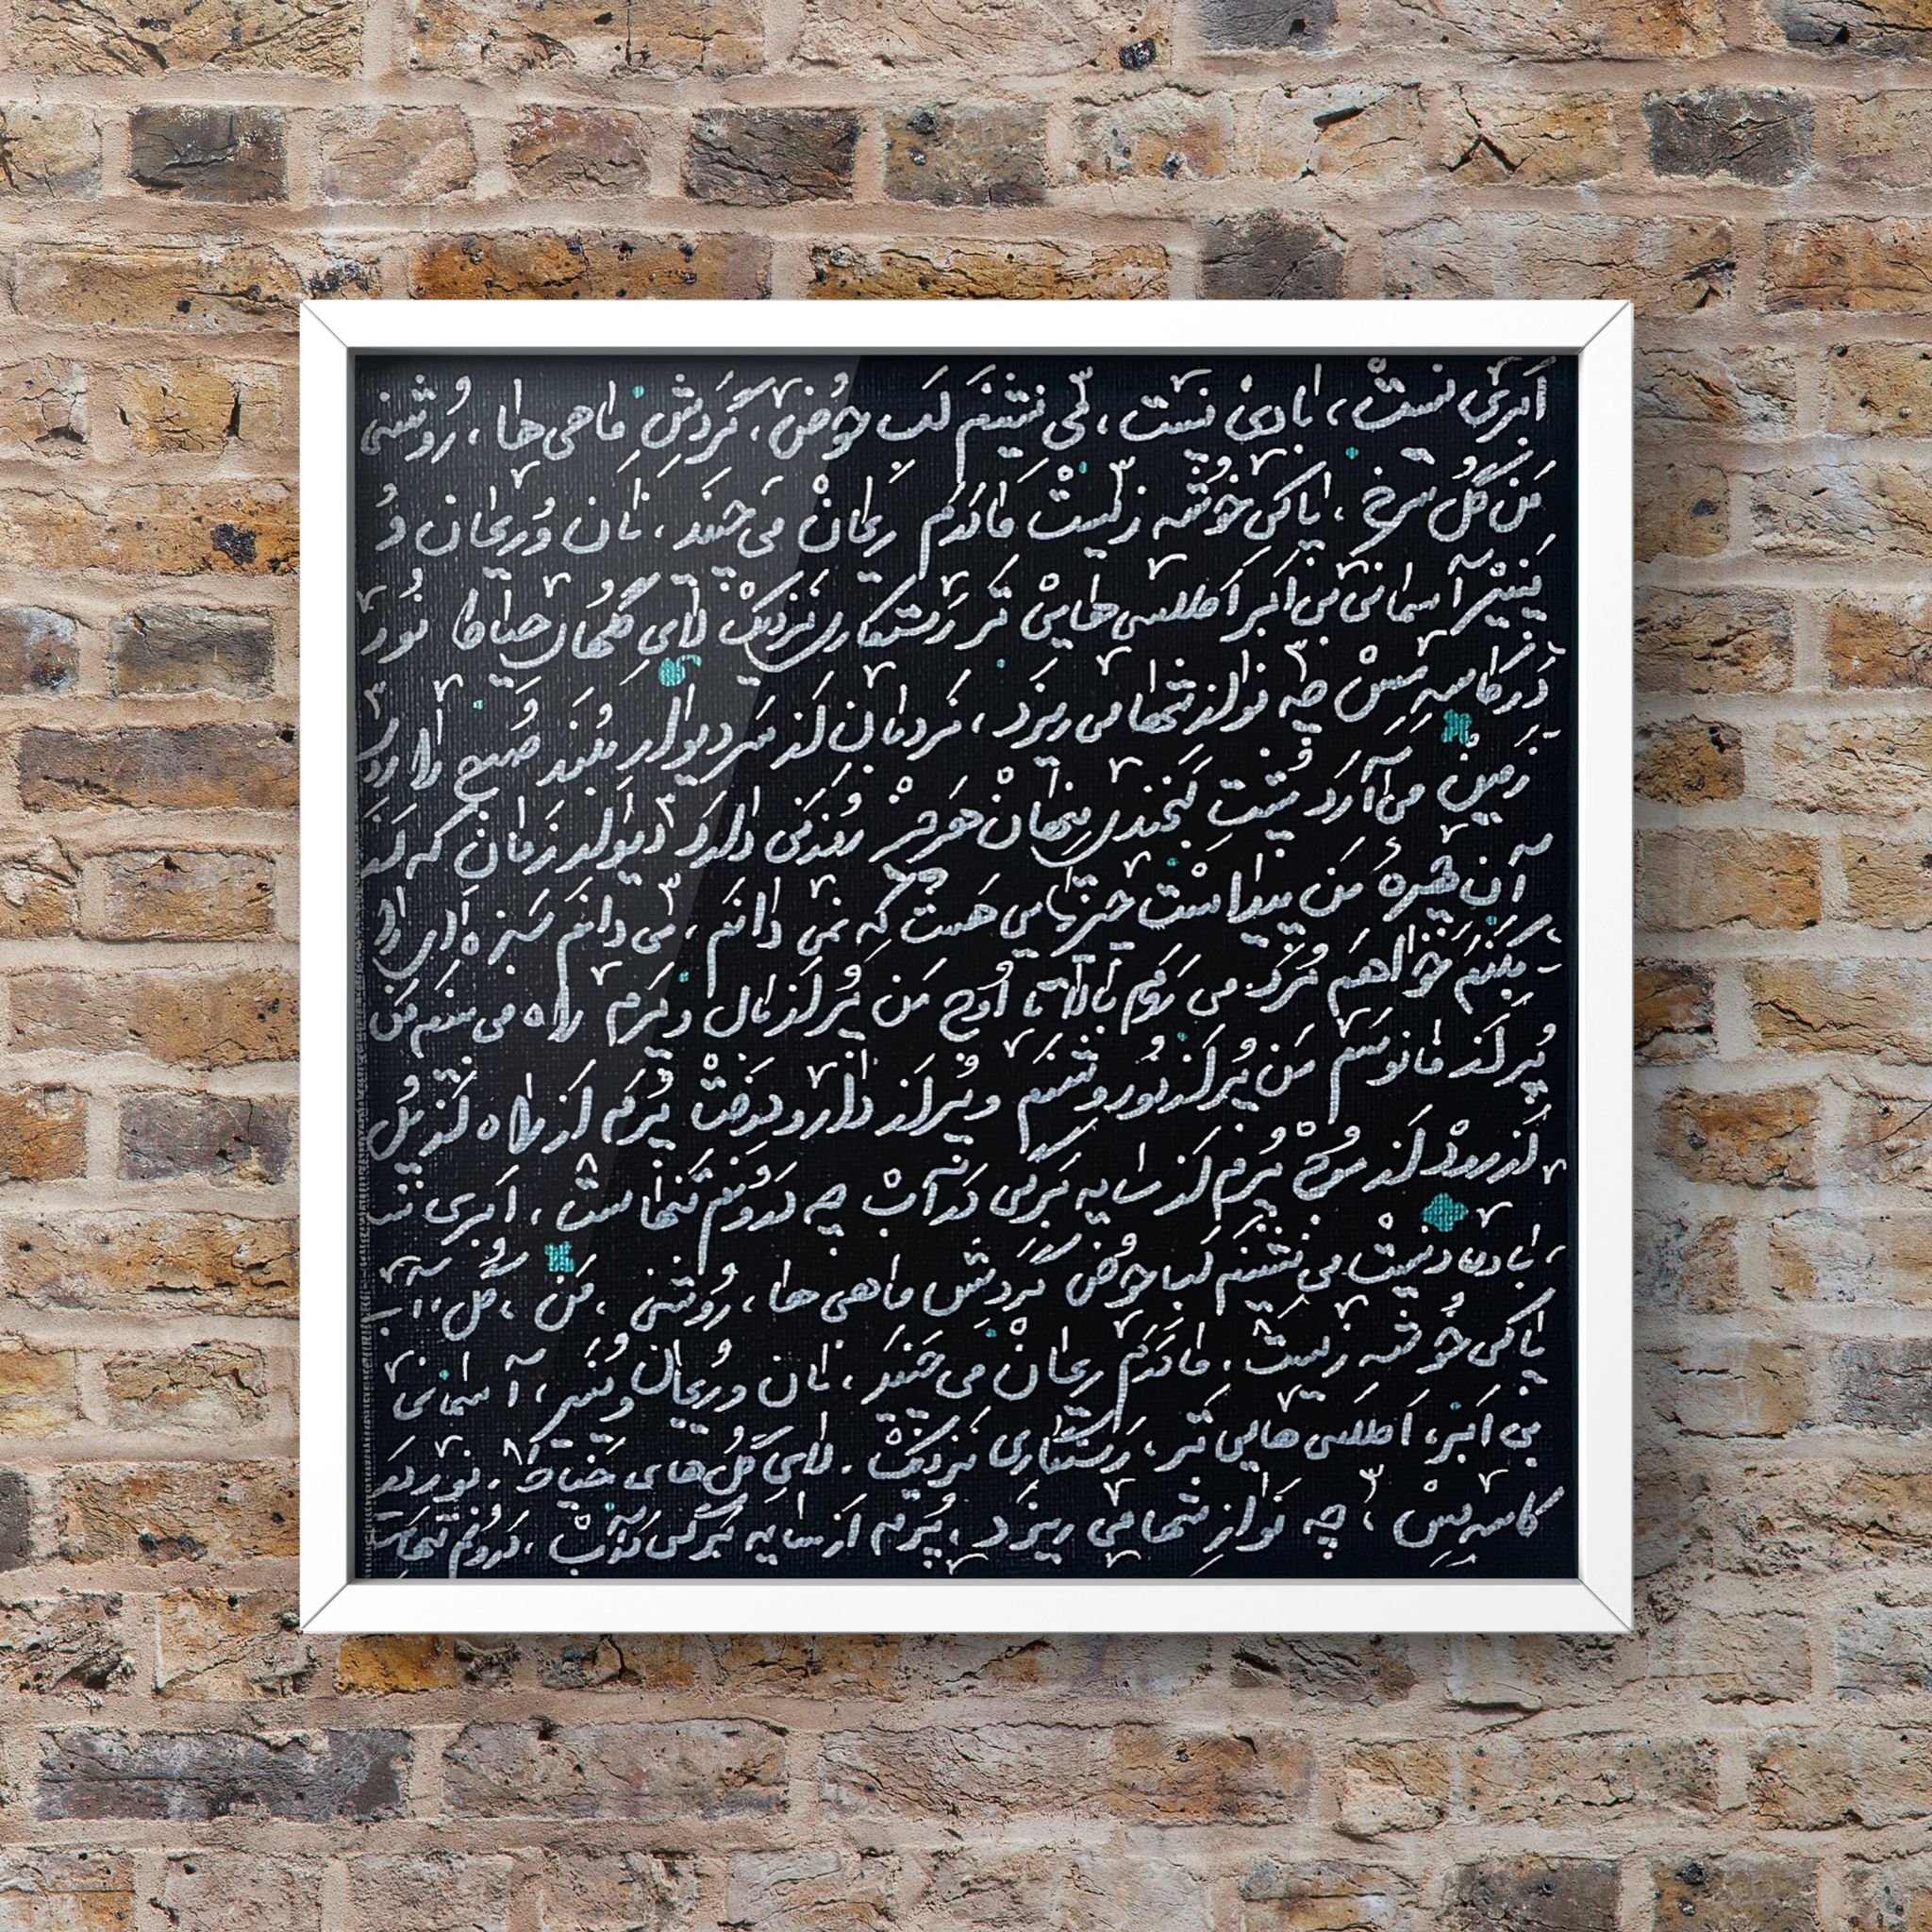 اَبری نیستْ، بادی نیست، می نشینَم لَب حوُض، گردِشِ ماهی ها، رُوشنی
مَن گُل سرخ، پاکی خوُشه زیستْ مادَرَم ریحانْ می چیند، نان وَ ریحان وُ
پنیرْ آسمانی بی اَبر اَطلسی هایی تَر رَستگاری نَزدیکْ لای گُلهای حیاط نُور
دَر کاسه مِسْ چه نوازشها می ریزَد، نَردبان از سَر دیوار بُلند صُبح را روی
زمینْ می آرَد پُشتِ لبخندی پنهانْ هَر چیزْ روزَنی دارَد دیوار زَمان که از
آن چهره مَن پیداست چیزهایی هَست که نمی دانَم، می دانَم سَبزه ای را
بکَنَم خواهَم مُرد می رَوَم بالا تا اُوج مَن پُر از بال و پَرَم راه می بینَم مَن
پُر از فانوسَم مَن پُر از نُور و شنَم و پُر از دار و دِرَختْ پُرَم از راه از پُل
از رودْ از موُجْ پُرم از سایه بَرگی دَر آبْ چه دَرونَم تَنهاستْ، اَبری
، بادی نیستْ می نشینَم لب حوُض گردِش ماهی ها، رُوشنی، مَن، گُل، آب
پاکی خوُشه زیستْ، مادَرَم ریحانْ می چیند، نان وَ ریحان وَ پنیر، آسمانی
بی اَبر، اَطلسی هایی تَر، رَستگاری نَزدیکْ. لای گُل های حَیاط. نُور دَر
کاسه مِسْ، چه نَوازِشها می ریزَد، پُرَم اَز سایه بَرگی دَر آبْ، دَرونَم تنهاست